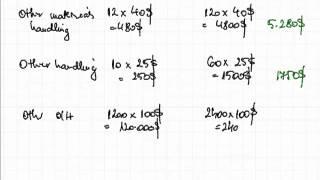 Other materials 12 x 40$ 120 x 40$
handling = 480$ = 4800$ 5.280$
Other handling 10 x 25$ 60 x 25$
= 250$ = 1500$ 1750$
Oth OH 1200 x 100$ 2400 x 100$
= 120.000$ = 240